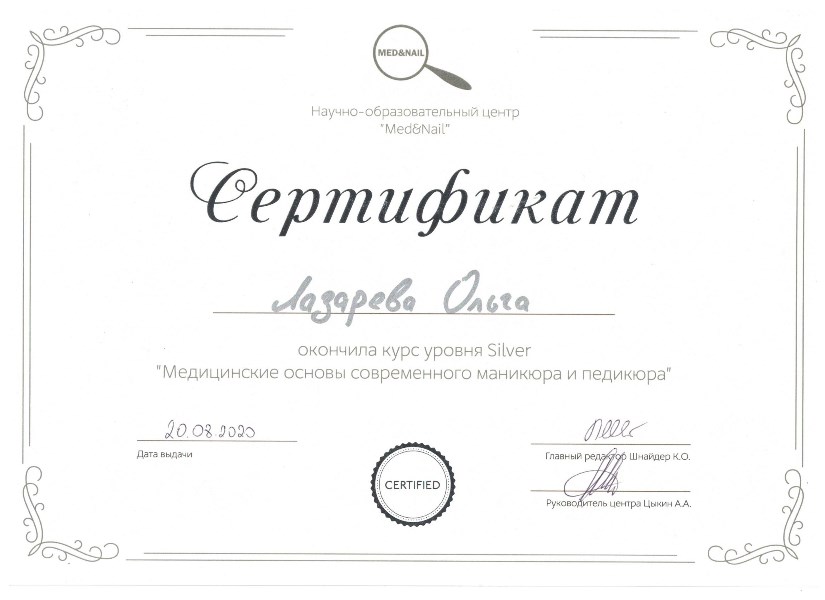 MED&NAIL
Научно-образовательный центр
"Med&Nail"
Сертификат
Лазарева Ольга
окончила курс уровня Silver
"Медицинские основы современного маникюра и педикюра"
20.08.2020
Дата выдачи
CERTIFIED
Главный редактор Шнайдер К.О.
Руководитель центра Цыкин А.А.